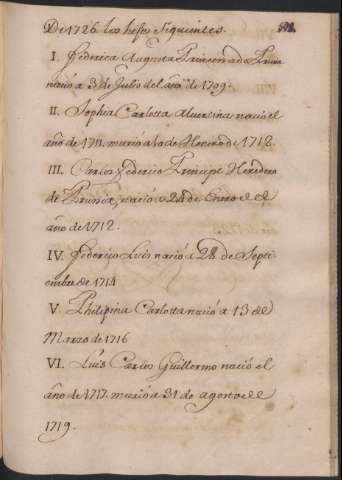 De 1726 los hijos Siguientes.
I. Federica Augusta Princesa de Prusia
nació a 3 de Julio del año de 1709.
II. Sophia Carlotta Albertina nació el
año de 1711. murió a 10 de Henero de 1712.
III. Carlos Federico Principe Heredero
de Prusia, nació a 28 de Enero del
año de 1712.
IV. Federico Luis nació a 28 de Septi-
embre de 1714
V. Philipina Carlotta nació a 13 del
Marzo de 1716
VI. Luis Carlos Guillermo nació el
año de 1717. murió a 31 de agosto del
1719.